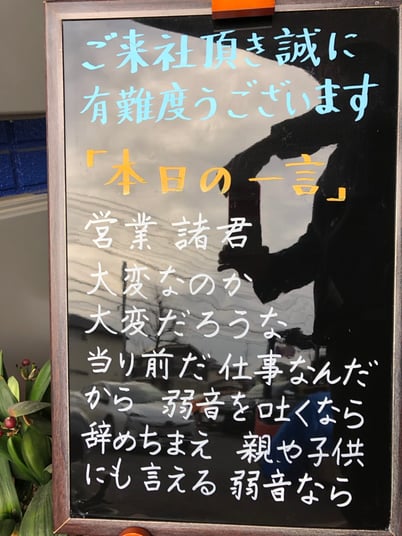 ご来社頂き誠に
有難度うございます
「本日の一言」
営業諸君
大変なのか
大変だろうな
当り前だ 仕事なんだ
から 弱音を吐くなら
辞めちまえ 親や子供
にも言える 弱音なら